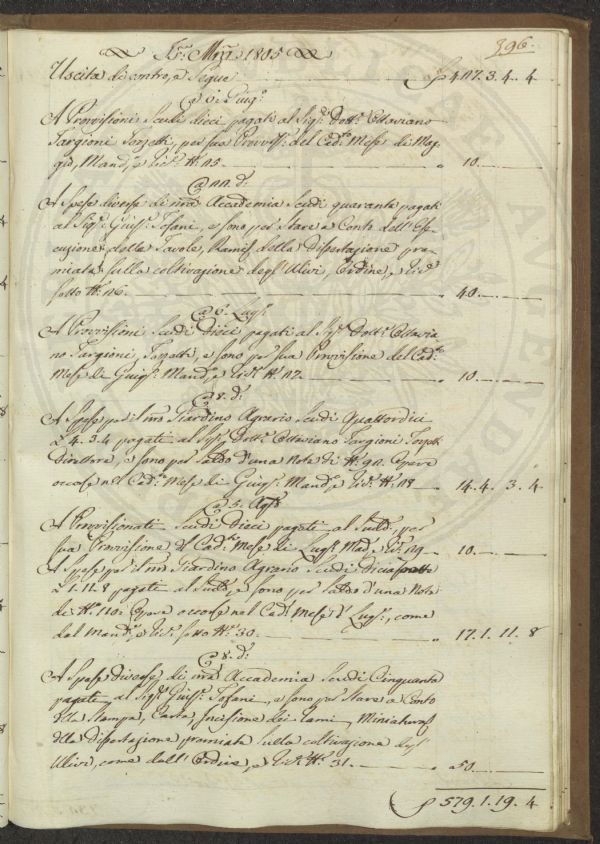 396.
1805
Uscita di contro, e Segue ₽ 417.3.4.4
A Provvisioni Scudi dieci pagati al Sig.r Dott.r Ottaviano
Targioni Tozzetti, per sua Provvis.e del Cad.to Mese di Mag-
gio, Mand.o, e Ric.a N.o 25. 10.
A Spese diverse di nra Accademia Scudi quaranta pagati
al Sig.r Gius.e Tofani, e sono per Stare a Conto dell'Ese-
cuzione delle Tavole, Rami della Dissertazione pre-
miata sulla coltivazione degl'Ulivi, Ordine, e Ric.a
sotto N.o 26. 40.
a 6. Lugl.o
A Provvisioni Scudi Dieci pagati al Sig.r Dott.r Ottavia
no Targioni Tozzetti, e sono per sua Provvisione del Cad.to
Mese di Giug.o Mand.o, e Ric.a N.o 27. 10.
a 8. d.o
A Spese per il nro Giardino Agrario Scudi Quattordici
£ 4.3.4 pagati al Sig.r Dott.r Ottaviano Targioni Tozzetti
Direttore, e sono per Saldo d'una Nota di N.o 90. Opere
occorse nel Cad.to Mese di Giug.o Mand.o, e Ric.a N.o 28 14.4.3.4
a 5. Ag.to
A Provvisionati Scudi Dieci pagati al Sudd.o, per
sua Provvisione del Cad.to Mese di Lug.o Mad.o, Ric.a 29 10.
A Spese per il nro Giardino Agrario Scudi Diciassette
£ 1.11.8 pagati al Sudd.o, e sono per Saldo d'una Nota
di N.o 110: Opere occorse nel Cad.to Mese d' Lug.o, come
dal Mand.o, e Ric.a sotto N.o 30. 17.1.11.8
a 8. d.o
A Spese Diverse di nra Accademia Scudi Cinquanta
pagati al Sig.r Gius.e Tofani, e sono per Stare a Conto
della Stampa, Carta, Incisione dei Rami, Miniatura
della Dissertazione premiata sulla coltivazione degl'
Ulivi, come dall'Ordine, e Ric.a N.o 31. 50.
₽ 579.1.19.4